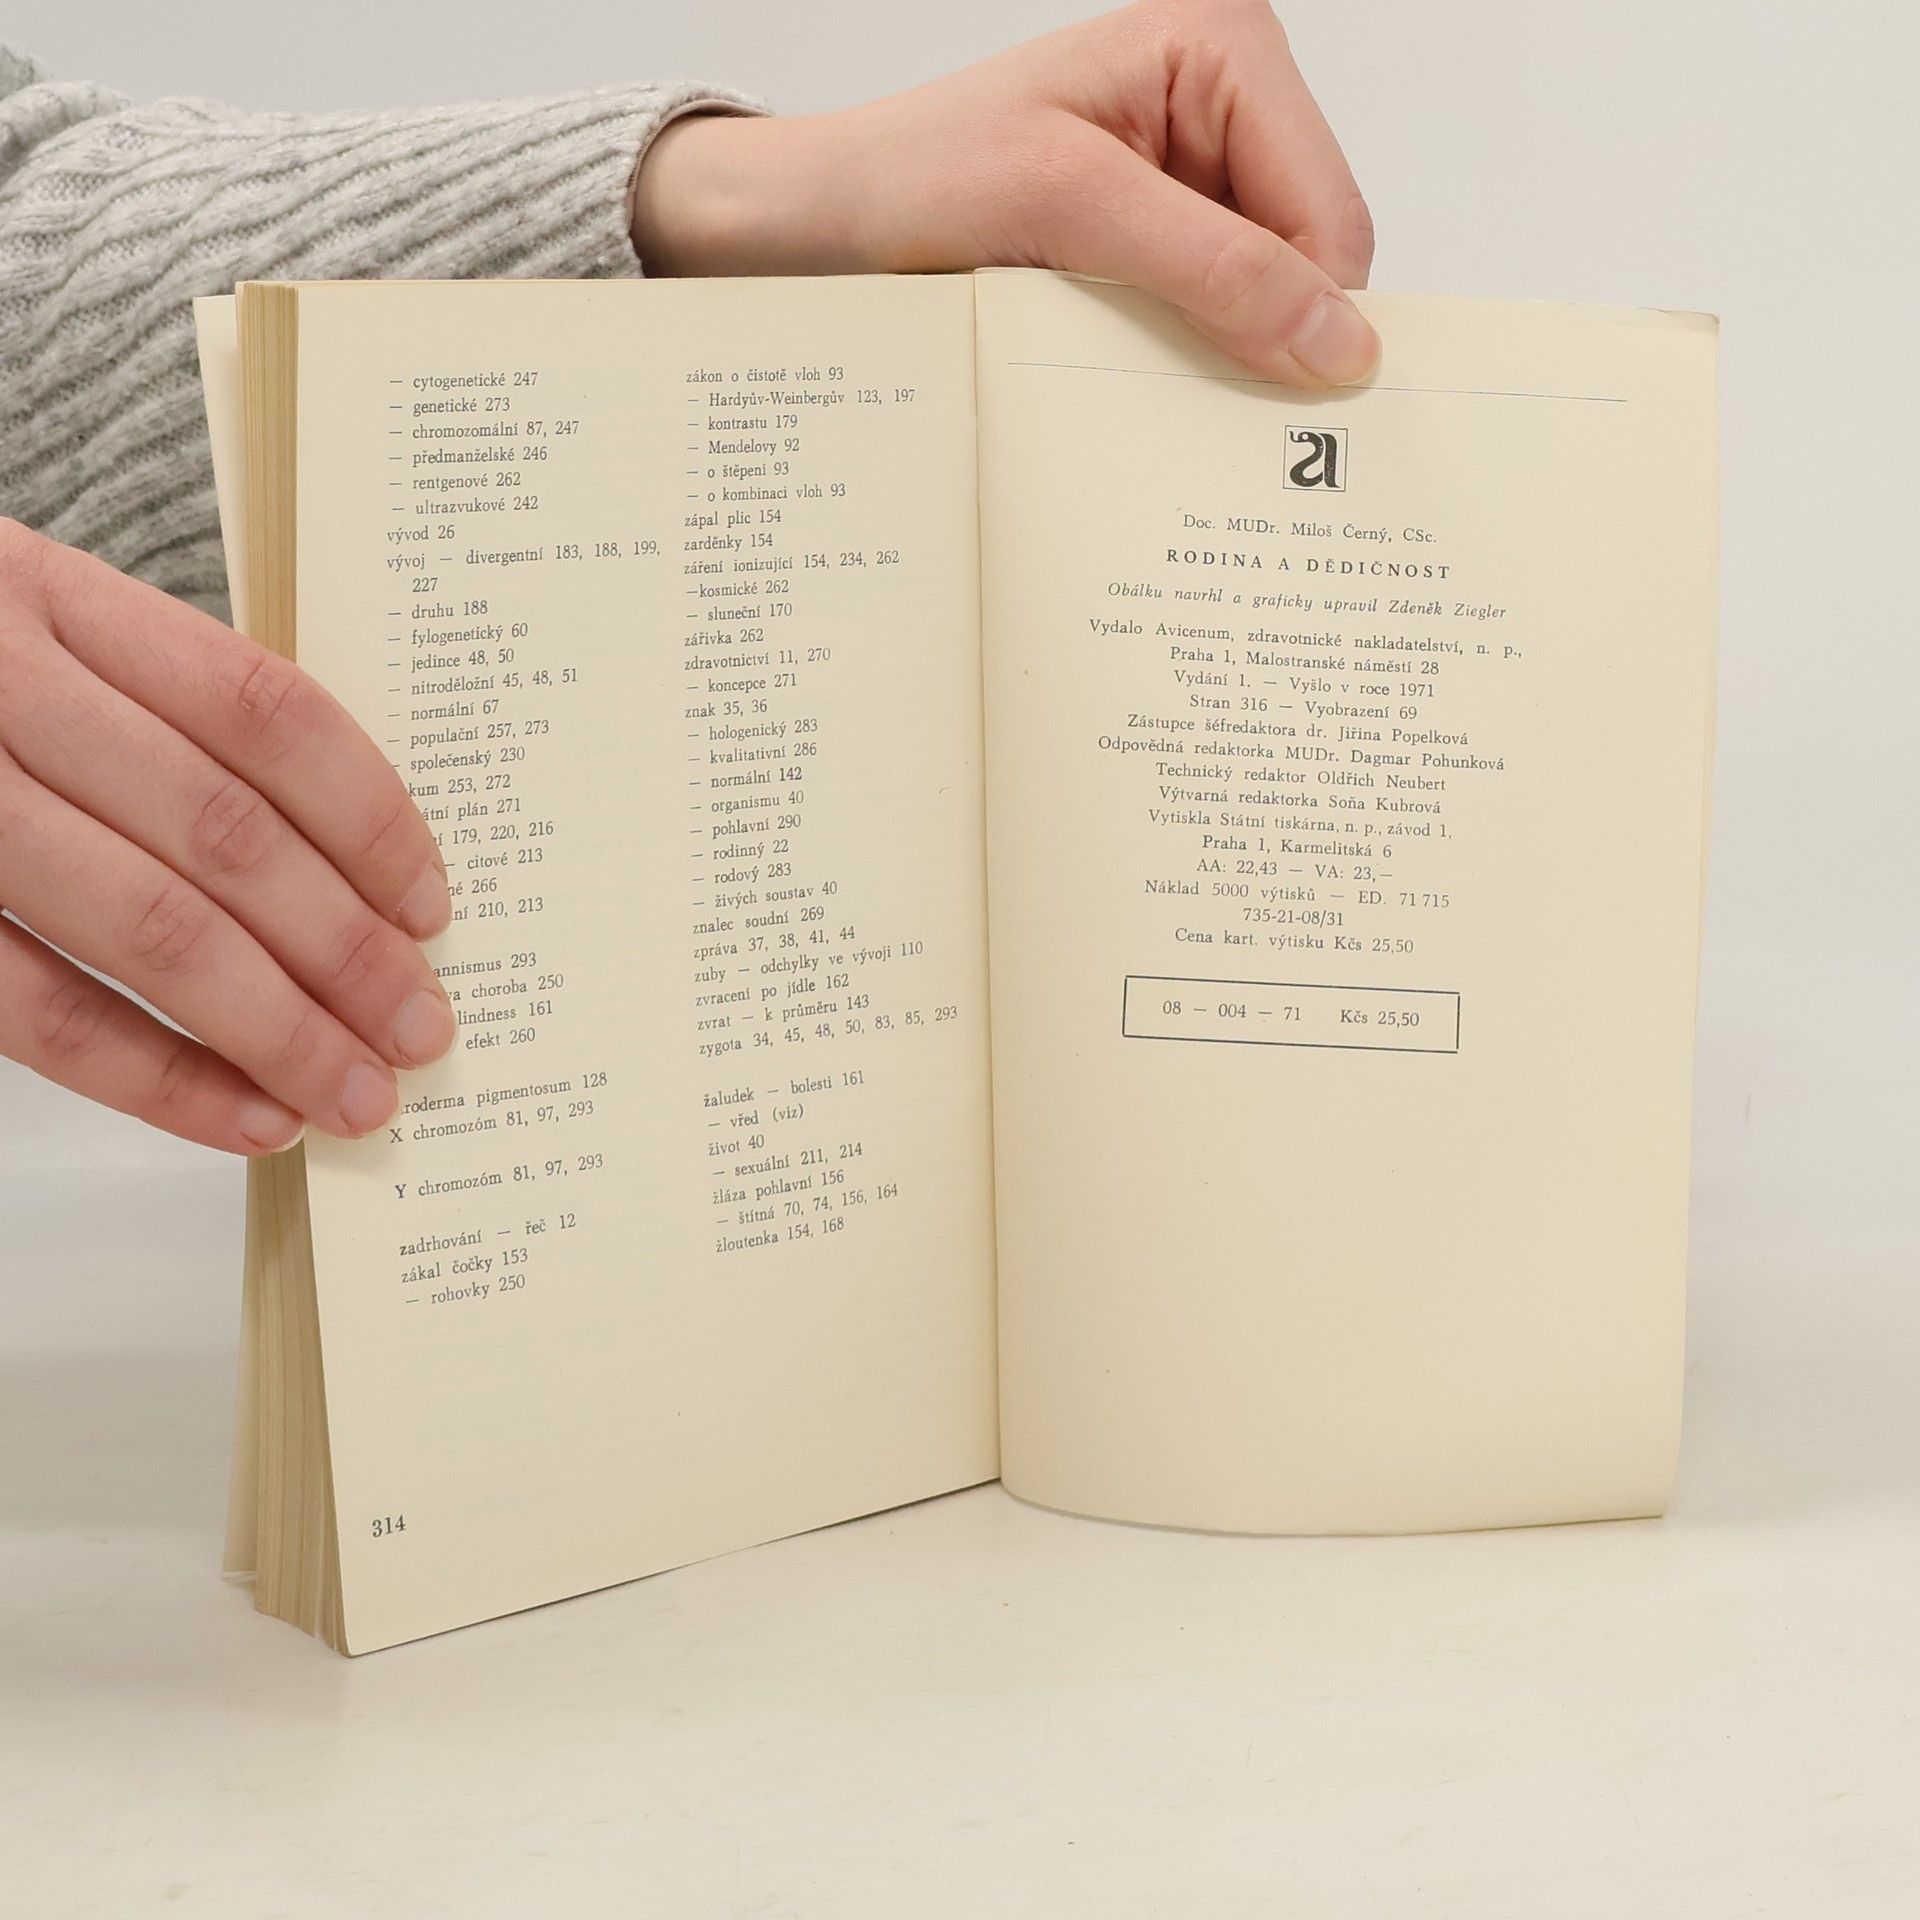 — cytogenetické 247
— genetické 273
— chromozomální 87, 247
— předmanželské 246
— rentgenové 262
— ultrazvukové 242
vývod 26
vývoj — divergentní 183, 188, 199,
227
— druhu 188
— fylogenetický 60
— jedince 48, 50
— nitroděložní 45, 48, 51
— normální 67
— populační 257, 273
— společenský 230
253, 272
plán 271
179, 220, 216
— citové 213
266
210, 213
293
choroba 250
161
efekt 260
pigmentosum 128
X chromozóm 81, 97, 293
Y chromozóm 81, 97, 293
zadrhování — řeč 12
zákal čočky 153
— rohovky 250
314
zákon o čistotě vloh 93
— Hardyův-Weinbergův 123, 197
— kontrastu 179
— Mendelovy 92
— o štěpení 93
— o kombinaci vloh 93
zápal plic 154
zarděnky 154
záření ionizující 154, 234, 262
—kosmické 262
— sluneční 170
zářivka 262
zdravotnictví 11, 270
— koncepce 271
znak 35, 36
— hologenický 283
— kvalitativní 286
— normální 142
— organismu 40
— pohlavní 290
— rodinný 22
— rodový 283
— živých soustav 40
znalec soudní 269
zpráva 37, 38, 41, 44
zuby — odchylky ve vývoji 110
zvracení po jídle 162
zvrat — k průměru 143
zygota 34, 45, 48, 50, 83, 85, 293
žaludek — bolesti 161
— vřed (viz)
život 40
— sexuální 211, 214
žláza pohlavní 156
— štítná 70, 74, 156, 164
žloutenka 154, 168
a
Doc. MUDr. Miloš Černý, CSc.
RODINA A DĚDIČNOST
Obálku navrhl a graficky upravil Zdeněk Ziegler
Vydalo Avicenum, zdravotnické nakladatelství, n. p.,
Praha 1, Malostranské náměstí 28
Vydání 1. — Vyšlo v roce 1971
Stran 316 — Vyobrazení 69
Zástupce šéfredaktora dr. Jiřina Popelková
Odpovědná redaktorka MUDr. Dagmar Pohunková
Technický redaktor Oldřich Neubert
Výtvarná redaktorka Soňa Kubrová
Vytiskla Státní tiskárna, n. p., závod 1,
Praha 1, Karmelitská 6
AA: 22,43 — VA: 23,—
Náklad 5000 výtisků — ED. 71 715
735-21-08/31
Cena kart. výtisku Kčs 25,50
08 — 004 — 71 Kčs 25,50